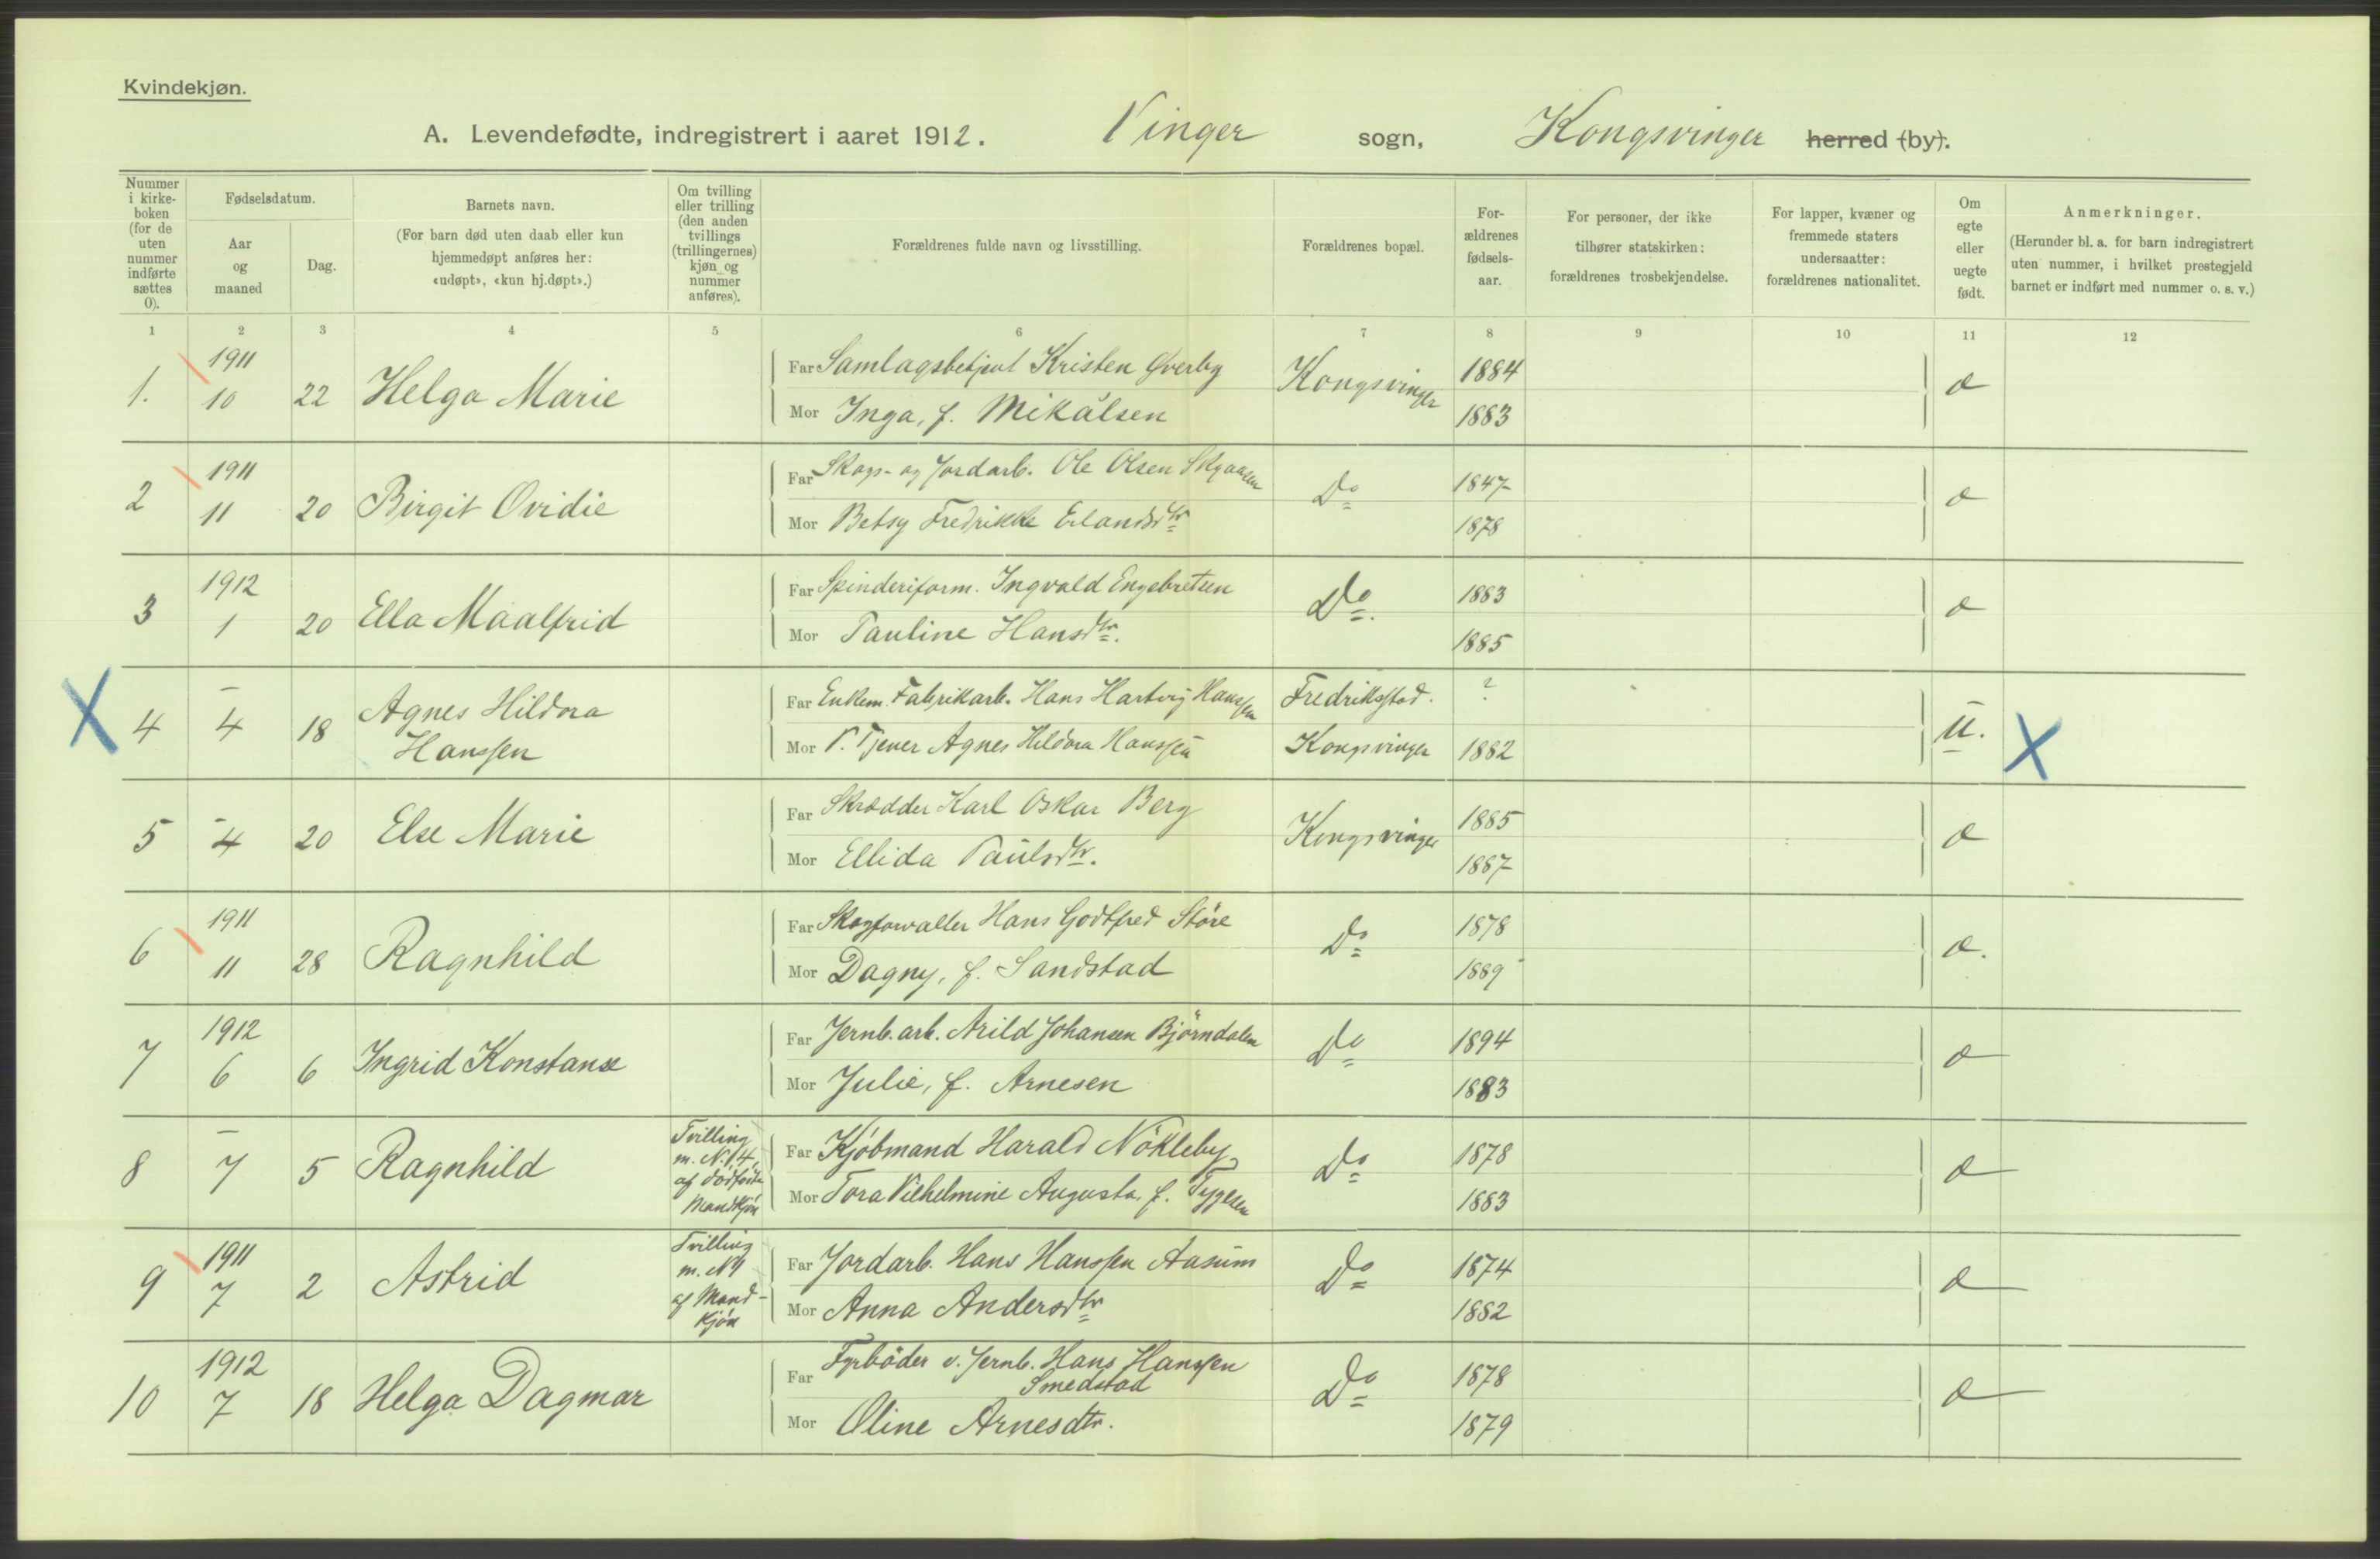 Kvindekjøn.
A. Levendefødte, indregistrert i aaret 1912. Vinger sogn, Kongsvinger herred (by).
Nummer i kirke- boken (for de uten nummer indførte sættes 0).
Fødselsdatum.
Aar og maaned
Dag.
Barnets navn.
(For barn død uten daab eller kun hjemmedøpt anføres her: «udøpt», «kun hj.døpt».)
Om tvilling eller trilling (den anden tvillings (trillingernes) kjøn og nummer anføres).
Forældrenes fulde navn og livsstilling.
Forældrenes bopæl.
For- ældrenes fødsels- aar.
For personer, der ikke tilhører statskirken: forældrenes trosbekjendelse.
For lapper, kvæner og fremmede staters undersaatter: forældrenes nationalitet.
Om egte eller uegte født.
Anmerkninger.
(Herunder bl. a. for barn indregistrert uten nummer, i hvilket prestegjeld barnet er indført med nummer o. s. v.)
1 2 3 4 5 6 7 8 9 10 11 12
1. 1911 10 22 Helga Marie
Far Samlagsbetjent Kristen Øverby Kongsvinger 1884 æ
Mor Inga, f. Mikalsen 1883
2 1911 11 20 Birgit Ovidie
Far Skogs- og Jordarb. Ole Olsen Do 1847 æ
Mor Betsy Fredrikke Erlandsdtr 1878
3 1912 1 20 Ella Maalfrid
Far Spinderiform. Ingvald Engebretsen Do. 1883 æ
Mor Pauline Hansdtr. 1885
X 4 – 4 18 Agnes Hildora Hanssen
Far Enkem. Fabrikarb. Hans Hartvig Hanssen Fredriksstad. ? u. X
Mor P. Tjener Agnes Hildora Hanssen Kongsvinger 1882
5 - 4 20 Else Marie
Far Skrædder Karl Oskar Berg Kongsvinger 1885 æ
Mor Ellida Paulsdtr. 1887
6 1911 11 28 Ragnhild
Far Skogforvalter Hans Godtfred Störe Do 1878 æ.
Mor Dagny, f. Sandstad 1889
7 1912 6 6 Ingrid Konstanse
Far Jernb. arb. Arild Johansen Björndalen Do 1894 æ
Mor Julie, f. Arnesen 1883
8 – 7 5 Ragnhild Tvilling m. N. 4 af dødfødte Mandkjøn
Far Kjöbmand Harald Nökleby Do 1878 æ
Mor Tora Vilhelmine Augusta, f. Tygesen 1883
9 1911 7 2 Astrid Tvilling m. N af Mand- kjøn
Far Jordarb. Hans Hanssen Aasum Do 1874 æ
Mor Anna Andersdtr 1882
10 1912 7 18 Helga Dagmar
Far Fyrböder v. Jernb. Hans Hanssen Smedstad Do 1878 æ
Mor Oline Arnesdtr. 1879